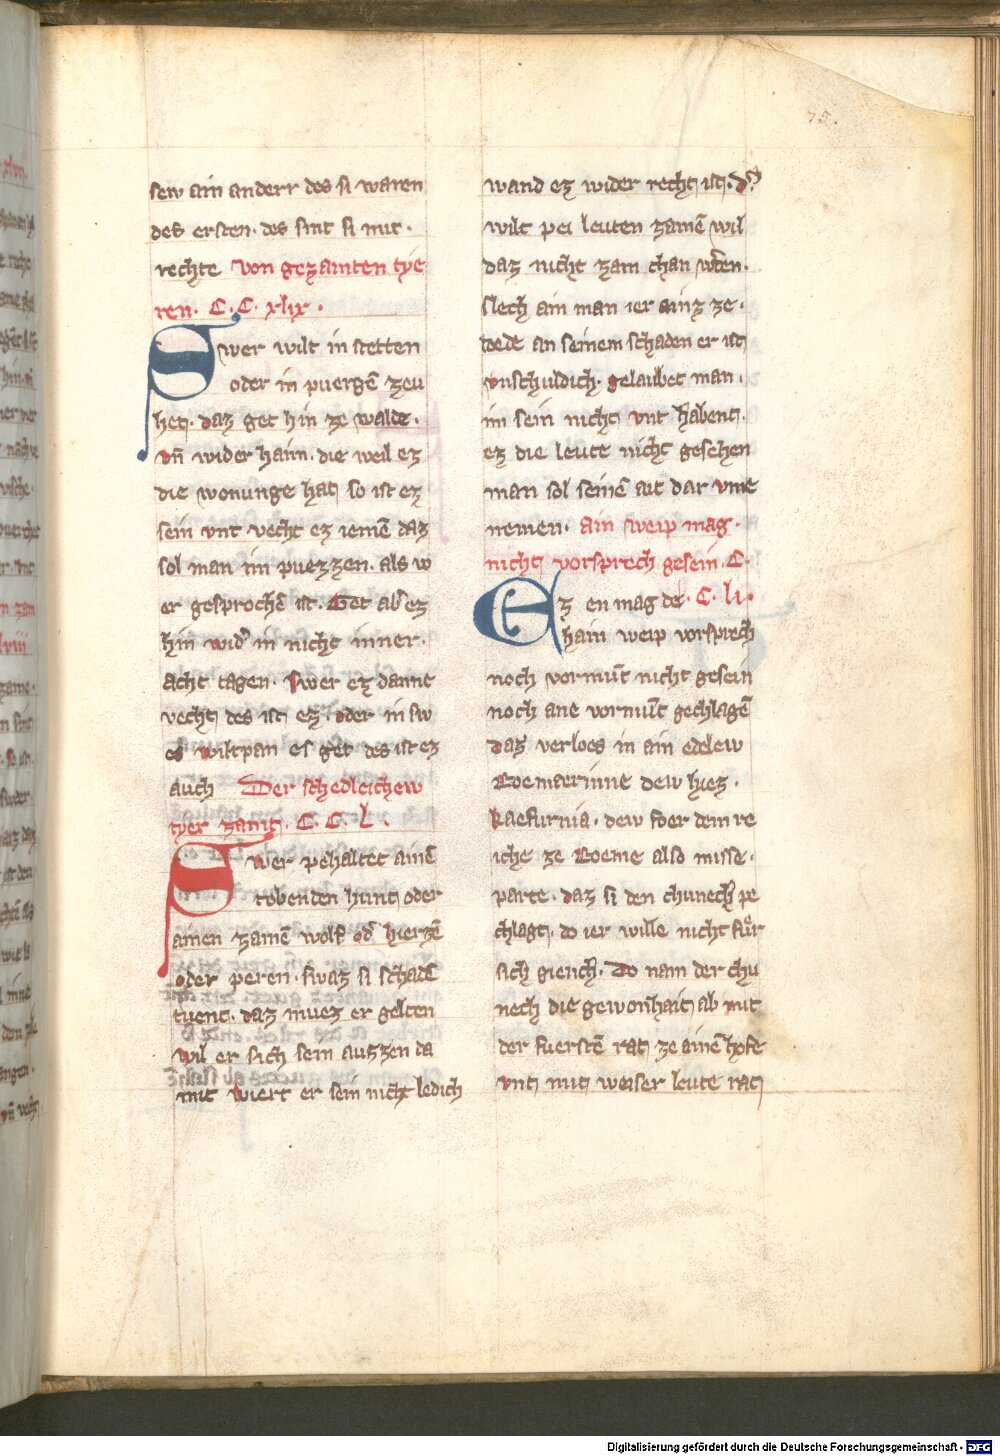 75.
sew ain anderr des si waren
des ersten. des sint si mit.
rechte von gezamten tye
ren. C. C. xlix.
Swer wilt in stetten
oder in puergē zeu
het. daz get hin ze walde.
vñ wider haim. die weil ez
die wonunge hat so ist ez
sein vnt vecht ez iemē daz
sol man im puezzen. als w
er gesprochē ist. Get ab̉ ez
hin wid̉ in nicht inner.
acht tagen. Swer ez danne
vecht des ist ez. oder in sw
es wiltpan es get des ist ez
auch Der schedleichew
tyer zamt. C. C. L.
Swer pehaltet ainē
tobenden hunt oder
ainen zamē wolf od̉ hierzē
oder peren. swaz si schadē
tuent. daz muez er gelten
wil er sich sein auzzen da
mit wiert er sein nicht ledich
wand ez wider recht ist. d̉
wilt pei leuten zamē wil
daz nicht zam chan wͤden.
slech ain man ier ainz ze.
toede an seinem schaden er ist
vnschuldich. gelaubet man.
im sein nicht vnt habent.
ez die leute nicht gesehen
man sol seinē ait dar vme
nemen. ain weip mag.
nicht vorsprech gesein. C.
C. li.
Ez en mag de
hain weip vorsprech
noch vormūt nicht gesein
noch ane vormūt gechlagē
daz verloes in ain edelew
Roemaerinne dew hiez.
kaefurnia. dew foer dem re
iche ze Roeme also misse.
parte. daz si den chunech pe
chlagt. do ier wille nicht fuͤr
sich giench. Do nam der chu
nech die gewonhait ab mit
der fuerstē rat ze ainē hofe
vnt mit weiser leute rat
Digitalisierung gefördert durch die Deutsche Forschungsgemeinschaft - DFG